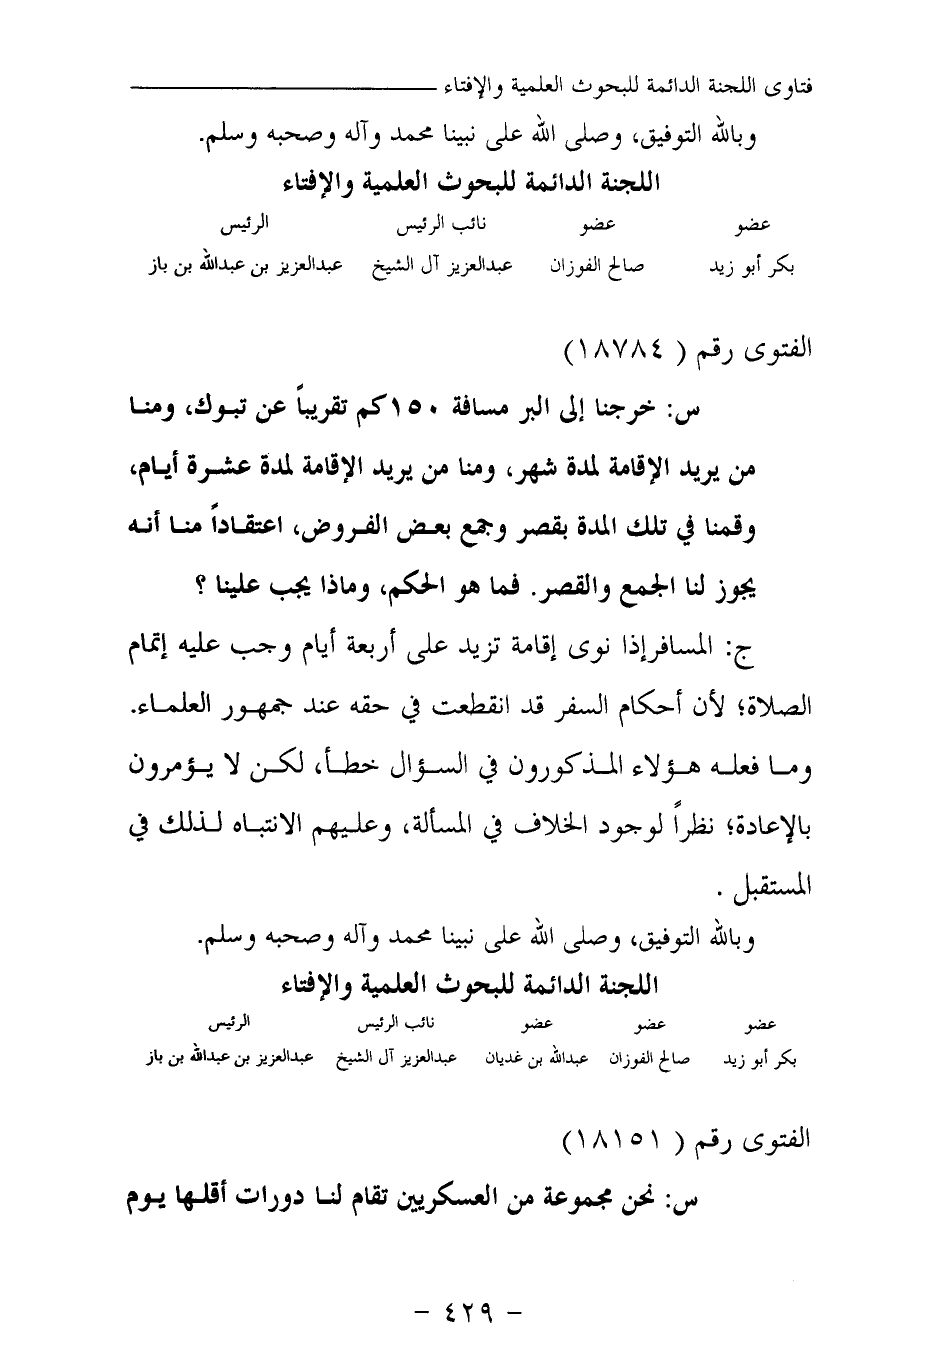 فتاوى اللجنة الدائمة للبحوث العلمية والإفتاء
وبالله التوفيق، وصلى الله على نبينا محمد وآله وصحبه وسلم.
اللجنة الدائمة للبحوث العلمية والإفتاء
عضو عضو نائب الرئيس الرئيس
بكر أبو زيد صالح الفوزان عبدالعزيز آل الشيخ عبدالعزيز بن عبدالله بن باز
الفتوى رقم ( ١٨٧٨٤)
س: خرجنا إلى البر مسافة ١٥٠كم تقريباً عن تبوك، ومنا
من يريد الإقامة لمدة شهر، ومنا من يريد الإقامة لمدة عشرة أيام،
وقمنا في تلك المدة بقصر وجمع بعض الفروض، اعتقاداً منا أنه
يجوز لنا الجمع والقصر. فما هو الحكم، وماذا يجب علينا ؟
ج: المسافر إذا نوى إقامة تزيد على أربعة أيام وجب عليه إتمام
الصلاة؛ لأن أحكام السفر قد انقطعت في حقه عند جمهور العلماء.
وما فعله هؤلاء المذكورون في السؤال خطأ، لكن لا يؤمرون
بالإعادة؛ نظراً لوجود الخلاف في المسألة، وعليهم الانتباه لذلك في
المستقبل .
وبالله التوفيق، وصلى الله على نبينا محمد وآله وصحبه وسلم.
اللجنة الدائمة للبحوث العلمية والإفتاء
عضو عضو عضو نائب الرئيس الرئيس
بكر أبو زيد صالح الفوزان عبدالله بن غديان عبدالعزيز آل الشيخ عبدالعزيز بن عبدالله بن باز
الفتوى رقم ( ١٨١٥١)
س: نحن مجموعة من العسكريين تقام لنا دورات أقلها يوم
- ٤٢٩ -